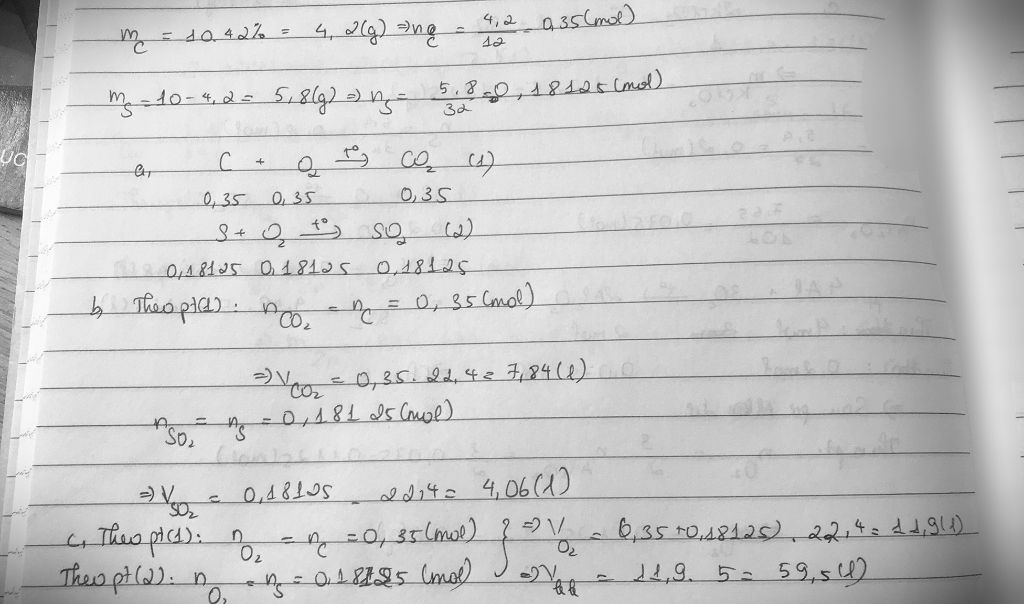 m_C = 10.42% = 4,2(g) ⇒ n_C = 4,2/12 = 0,35(mol)
m_S = 10 - 4,2 = 5,8(g) ⇒ n_S = 5,8/32 = 0,18125(mol)
a, C + O₂ →(t°) CO₂ (1)
0,35 0,35 0,35
S + O₂ →(t°) SO₂ (2)
0,18125 0,18125 0,18125
b, Theo pt(1): n_CO₂ = n_C = 0,35(mol)
⇒ V_CO₂ = 0,35. 22,4 = 7,84(l)
n_SO₂ = n_S = 0,18125(mol)
⇒ V_SO₂ = 0,18125 . 22,4 = 4,06(l)
c, Theo pt(1): n_O₂ = n_C = 0,35(mol) } ⇒ V_O₂ = (0,35+0,18125). 22,4 = 11,9(l)
Theo pt(2): n_O₂ = n_S = 0,18125 (mol) ⇒ V_kk = 11,9. 5 = 59,5(l)